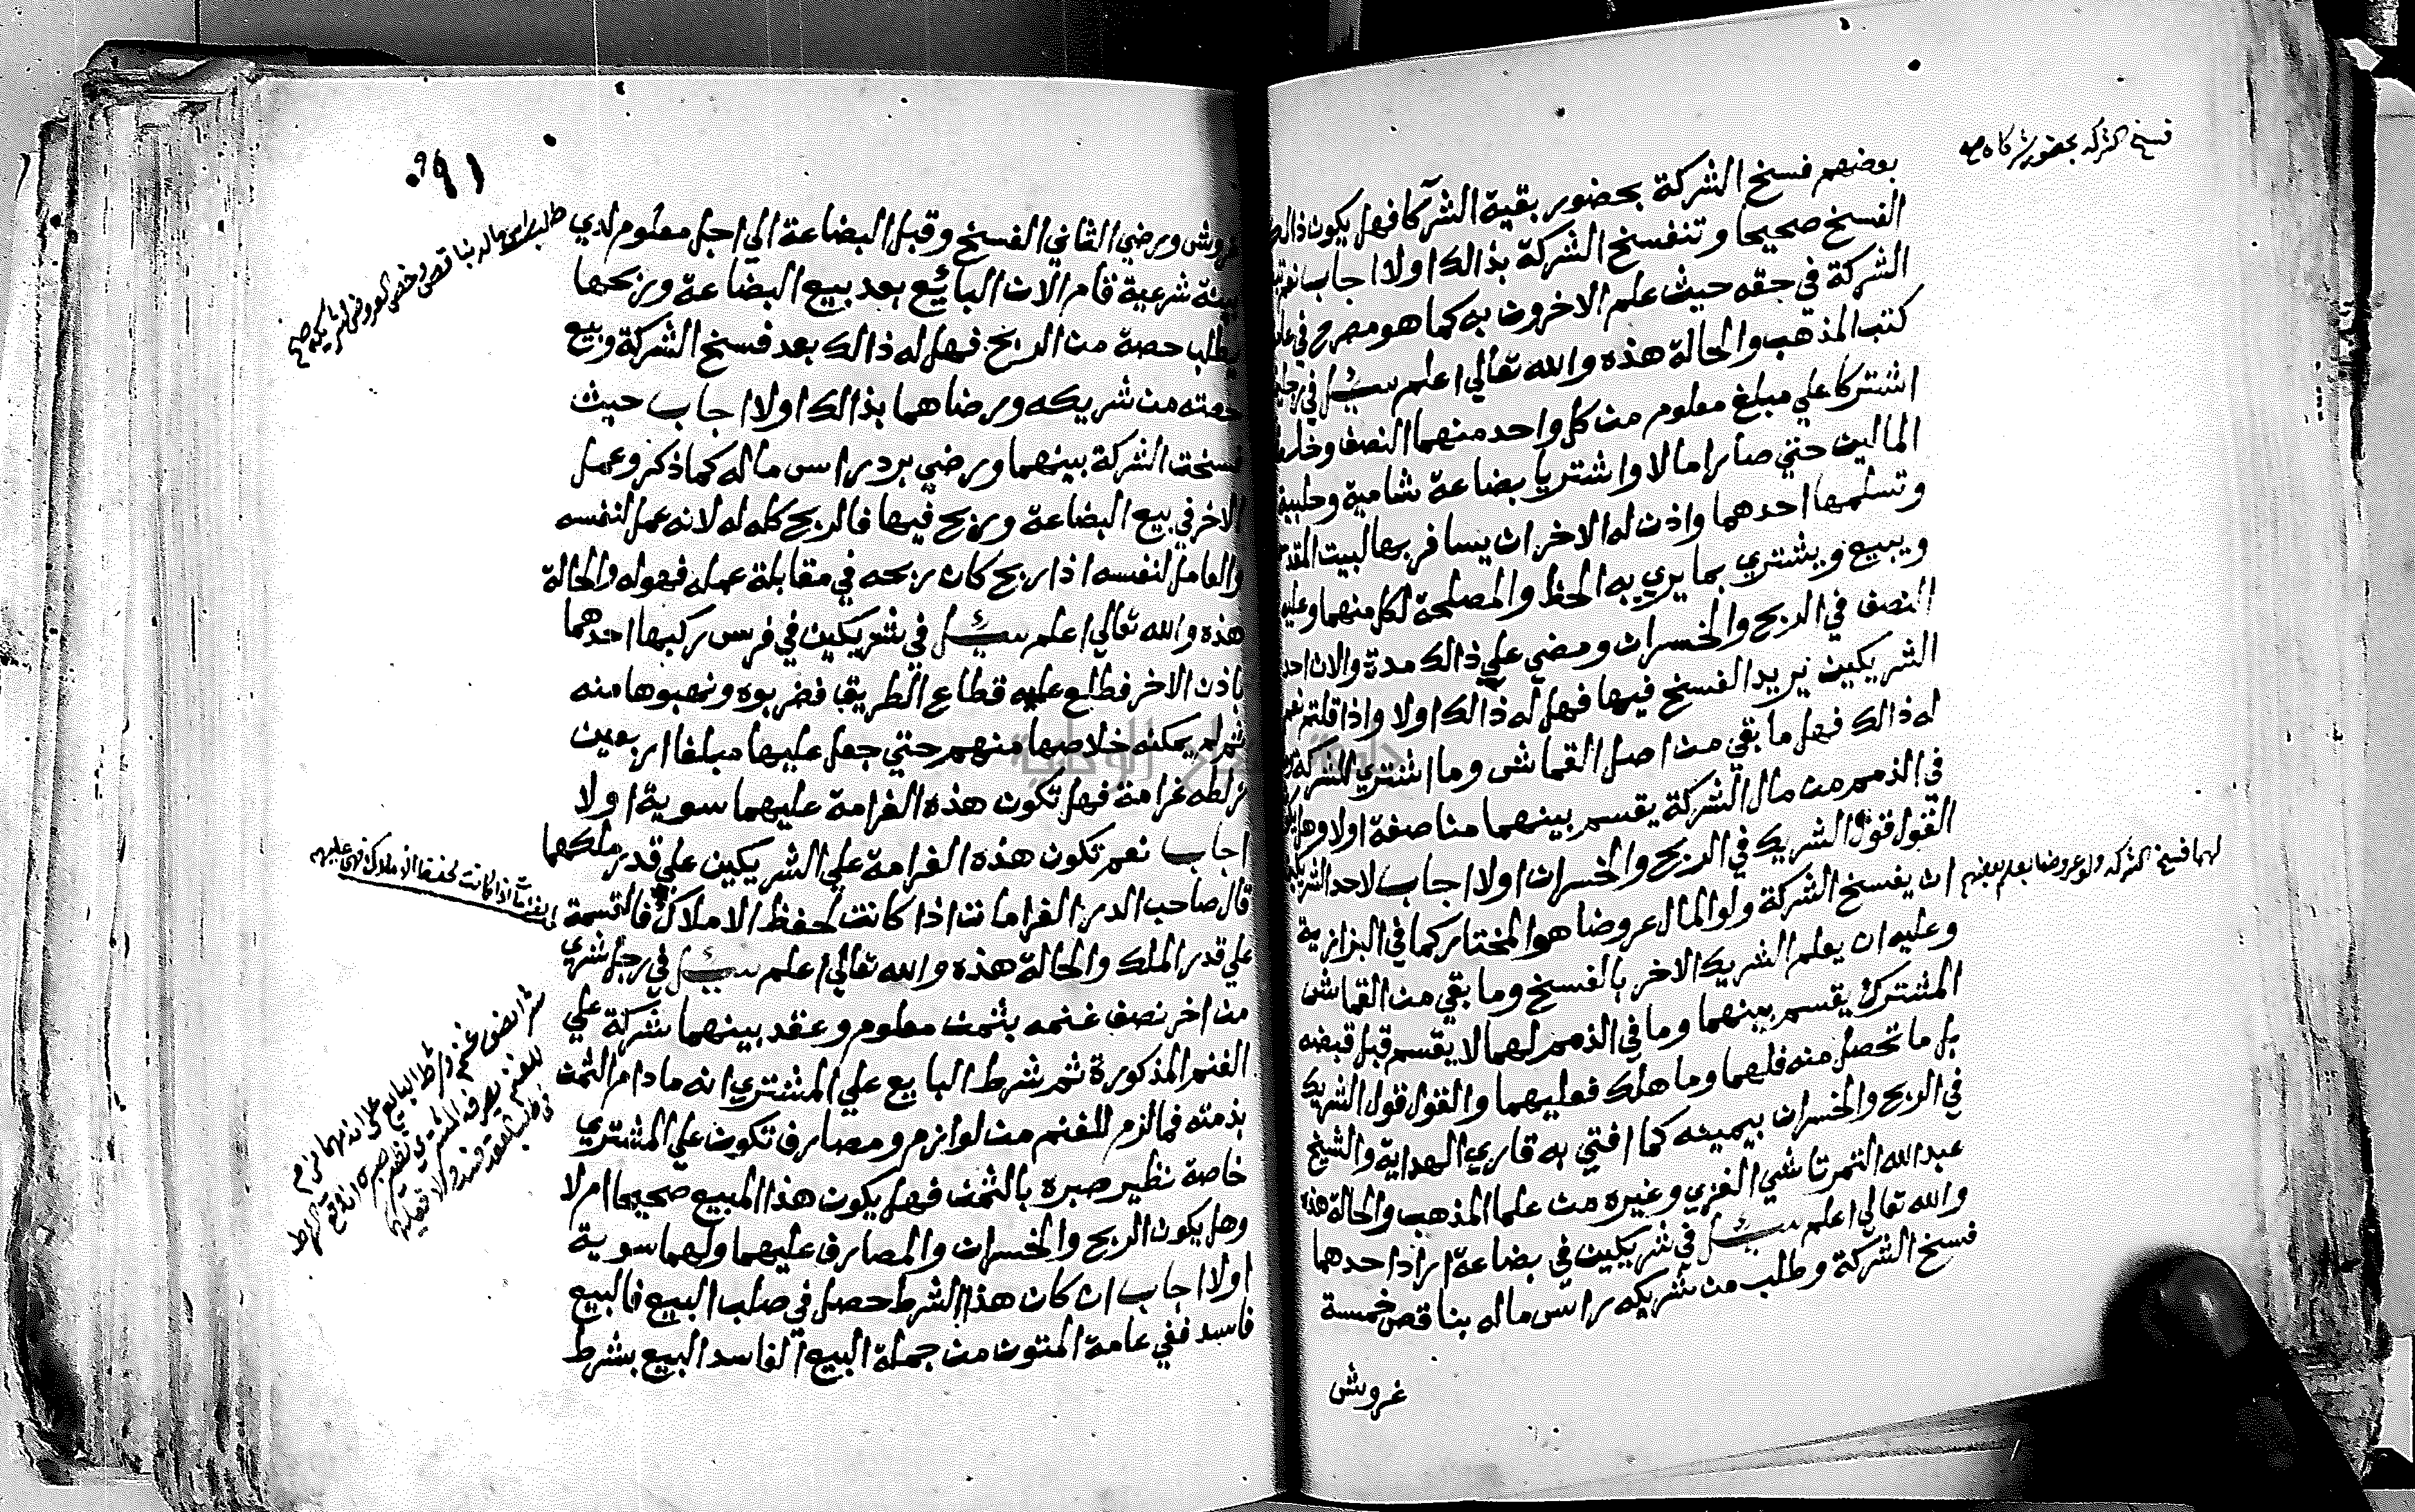 فسخ الشركة بحضور شركاه صح
بعضهم فسخ الشركة بحضور بقية الشركا فهل يكون ذالك
الفسخ صحيحا وتنفسخ الشركة بذالك اولا اجاب نعم
الشركة في حقه حيث علم الاخرون به كما هو مصرح في
كتب المذهب والحالة هذه والله تعالي اعلم سيئل في
اشتركا علي مبلغ معلوم من كل واحد منهما النصف وخلط
المالين حتي صارا مالا واشتريا بضاعة شامية وحلبية
وتسلمها احدهما واذن له الاخر ان يسافر بها لبيت المقدس
ويبيع ويشتري بما يري به الحظ والمصلحة لكل منهما وعليه
النصف في الربح والخسران ومضي علي ذالك مدة والان احد
الشريكين يريد الفسخ فيها فهل له ذالك اولا واذا قلتم نعم
له ذالك فهل ما بقي من اصل القماش وما اشتري للشركة
في الذمم من مال الشركة يقسم بينهما مناصفة اولا وهل
القول قول الشريك في الربح والخسران اولا اجاب لاحد الشريكين
ان يفسخ الشركة ولو المال عروضا هو المختار كما في البزازية
لهما فسخ الشركة ولو عروضا بعلم
وعليه ان يعلم الشريك الاخر بالفسخ وما بقي من القماش
المشترك يقسم بينهما وما في الذمم لهما لا يقسم قبل قبضه
بل ما تحصل منه فلهما وما هلك فعليهما والقول قول الشريك
في الربح والخسران بيمينه كما افتي به قاري الهداية والشيخ
عبد الله التمرتاشي الغزي وغيره من علما المذهب والحالة هذه
والله تعالي اعلم سيئل في شريكين في بضاعة اراد احدهما
فسخ الشركة وطلب من شريكه راس ماله بناقص خمسة
غروش
غروش ورضي الثاني الفسخ وقبل البضاعة الي اجل معلوم لدي
بينة شرعية قام الان البائع بعد بيع البضاعة وربحها
يطلب حصة من الربح فهل له ذالك بعد فسخ الشركة وبيع
حصته من شريكه ورضاهما بذالك اولا اجاب حيث
فسخت الشركة بينهما ورضي برد راس ماله كما ذكر وعمل
الاخر في بيع البضاعة وربح فيها فالربح كله له لانه عمل لنفسه
والعامل لنفسه اذا ربح كان ربحه في مقابلة عمله فهو له والحالة
هذه والله تعالي اعلم سيئل في شريكين في فرس ركبها احدهما
باذن الاخر فطلع عليه قطاع الطريق فضربوه ونهبوها منه
ثم لم يمكنه خلاصها منهم حتي جعل عليها مبلغا اربعين
زلطه غرامة فهل تكون هذه الغرامة عليهما سوية اولا
اجاب نعم تكون هذه الغرامة علي الشريكين علي قدر ملكهما
قال صاحب الدرر الغرامات اذا كانت لحفظ الاملاك فالقسمة
الغرامات اذا كانت لحفظ الاملاك فهي عليهم
علي قدر الملك والحالة هذه والله تعالي اعلم سيئل في رجل اشتري
من اخر نصف غنمه بثمن معلوم وعقد بينهما شركة علي
الغنم المذكورة ثم شرط البايع علي المشتري انه مادام الثمن
بذمته فما لزم للغنم من لوازم ومصارف تكون علي المشتري
خاصة نظير صبره بالثمن فهل يكون هذا المبيع صحيحا ام لا
وهل يكون الربح والخسران والمصارف عليهما ولهما سوية
اولا اجاب ان كان هذا الشرط حصل في صلب البيع فالبيع
فاسد ففي عامة المتون من جملة البيع الفاسد البيع بشرط